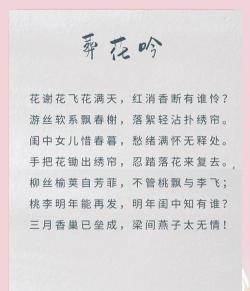 葬花吟
花谢花飞花满天，红消香断有谁怜？
游丝软系飘春榭，落絮轻沾扑绣帘。
闺中女儿惜春暮，愁绪满怀无释处。
手把花锄出绣帘，忍踏落花来复去。
柳丝榆荚自芳菲，不管桃飘与李飞；
桃李明年能再发，明年闺中知有谁？
三月香巢已垒成，梁间燕子太无情！